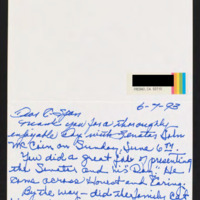 6-7-93
Dear C-Span
Thank you for a thoroughly
enjoyable day with Senator John
McCain on "Sunday, June 6th.
You did a great job of presenting
the Senator and "his Day." He
come across Honest and Caring.
By the way - did the family cat